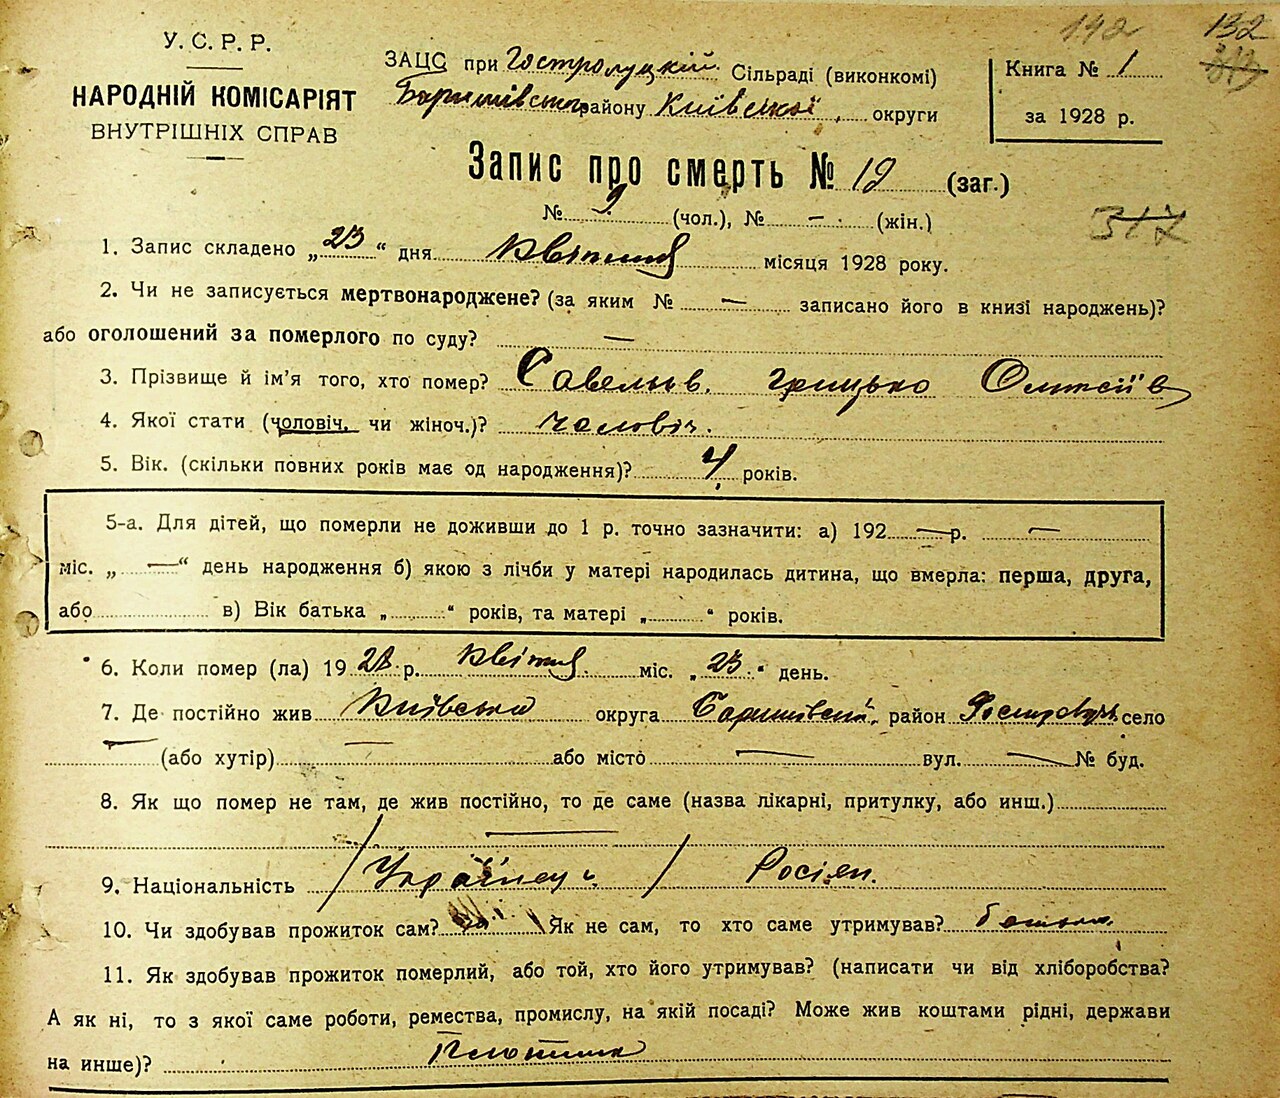 142 132
313
У. С. Р. Р.
НАРОДНІЙ КОМІСАРІЯТ
ВНУТРІШНІХ СПРАВ
ЗАЦС при Гостролуцкій Сільраді (виконкомі)
Баришівськ району Київської округи
Книга № 1
за 1928 р.
Запис про смерть № 19 (заг.)
№ 9 (чол.), № — (жін.)
317
1. Запис складено „23“ дня Квітня місяця 1928 року.
2. Чи не записується мертвонароджене? (за яким № — записано його в книзі народжень)?
або оголошений за померлого по суду? —
3. Прізвище й ім'я того, хто помер? Савельів. Грицько Олексіїв
4. Якої стати (чоловіч. чи жіноч.)? чоловіч.
5. Вік. (скільки повних років має од народження)? 4 років.
5-а. Для дітей, що померли не доживши до 1 р. точно зазначити: а) 192 — р. —
міс. „ — “ день народження б) якою з лічби у матері народилась дитина, що вмерла: перша, друга,
або в) Вік батька „ “ років, та матері „ “ років.
6. Коли помер (ла) 1928 р. Квітня міс. „23“ день.
7. Де постійно жив Київська округа Баришівський район село
— (або хутір) — або місто — вул. — № буд.
8. Як що помер не там, де жив постійно, то де саме (назва лікарні, притулку, або инш.)
—
9. Національність / Українец / Росіян.
10. Чи здобував прожиток сам? Як не сам, то хто саме утримував? батько.
11. Як здобував прожиток померлий, або той, хто його утримував? (написати чи від хліборобства?
А як ні, то з якої саме роботи, ремества, промислу, на якій посаді? Може жив коштами рідні, держави
на инше)?